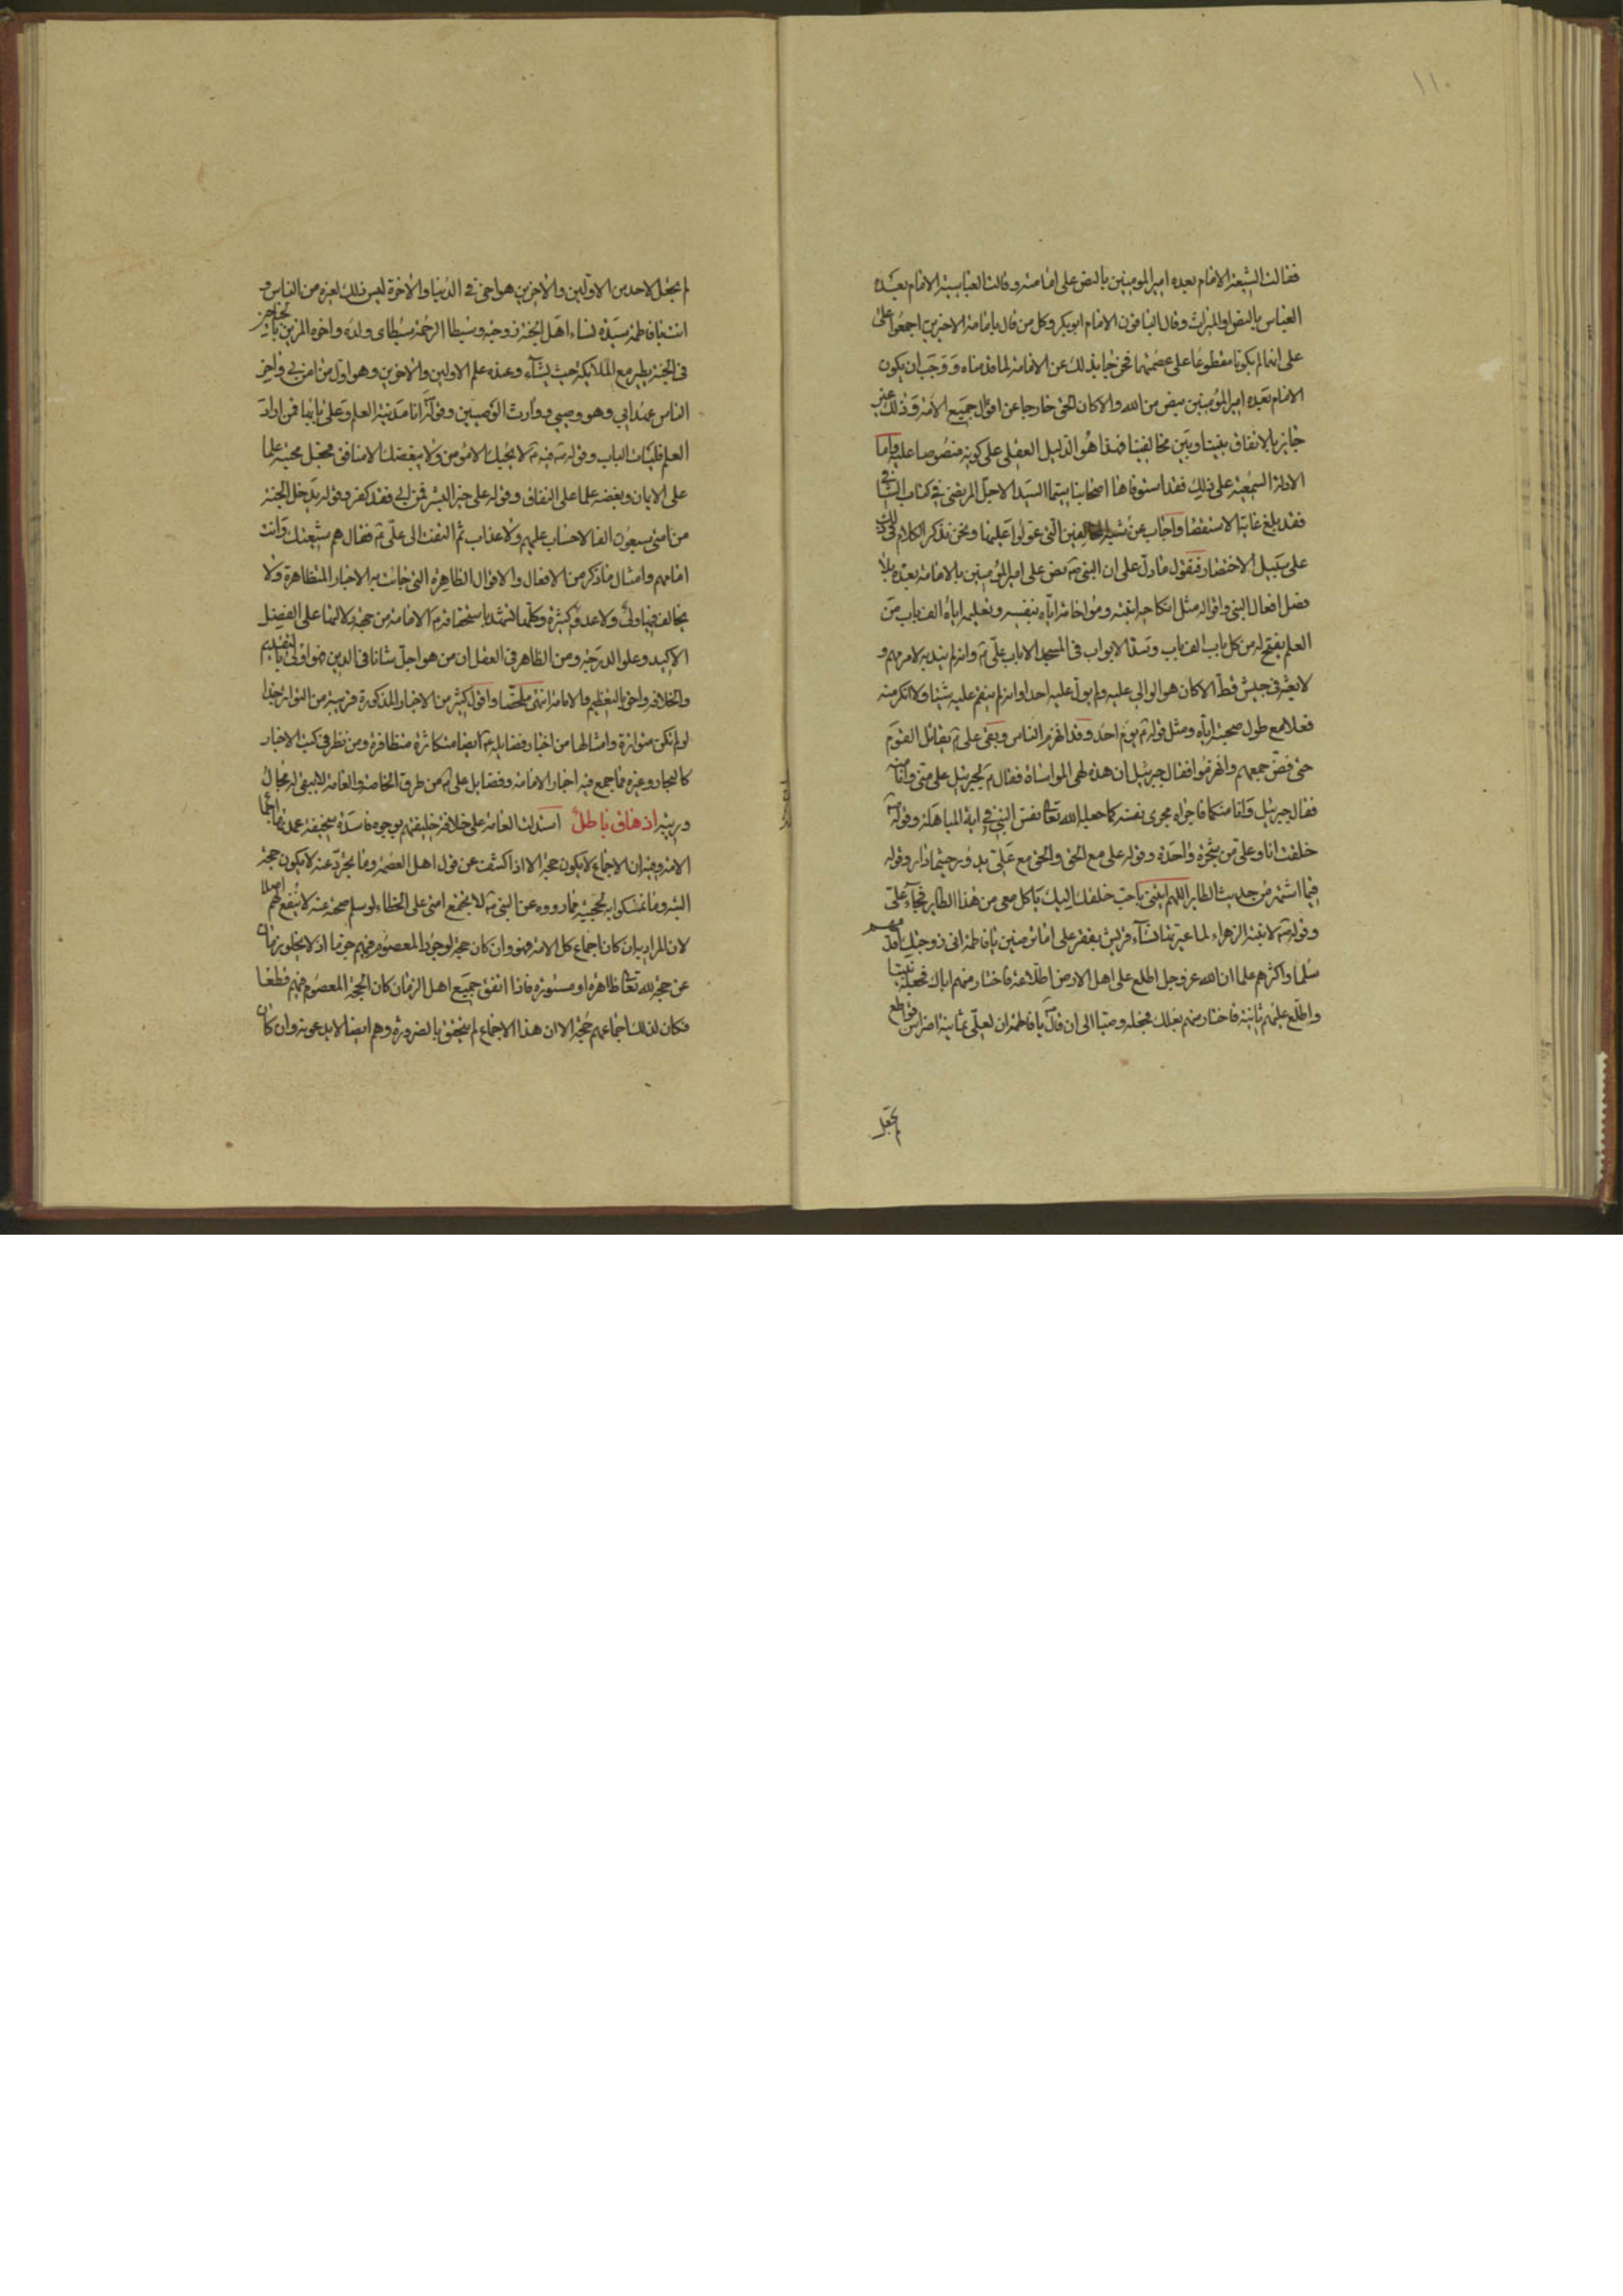 ١١٠
فقالت الشيعة الامام بعده امير المومنين بالنص على امامته وقالت العباسية الامام بعده
العباس بالنص او الميراث وقال الباقون الامام ابوبكر وكل من قال بامامة الاخرين اجمعوا على
على انهما لم يكونا مقطوعا على عصمتهما فخرجا بذلك عن الامامة لما قدمناه ووجب ان يكون
الامام بعده امير المؤمنين بنص من الله والا كان الحق خارجا عن اقوال جميع الامة وذلك غير
جايز بالاتفاق بيننا وبين مخالفينا فهذا هو الدليل العقلى على كونه منصوصا عليه واما
الادلة السمعية على ذلك فقد استوفاها اصحابنا سيما السيد الاجل المرتضى فى كتاب الشافى
فقد بلغ غاية الاستقصا واجاب عن شبه المخالفين التى عولوا عليها ونحن نذكر الكلام فى ذلك
على سبيل الاختصار فنقول ما دل على ان النبى ص نص على امير المؤمنين بالامامة بعده بلا
فصل افعال النبى واقواله مثل انكاحه ابنته ومواخاته اياه بنفسه وتعليمه اياه الف باب من
العلم يفتح له من كل باب الف باب وسد الابواب فى المسجد الا باب على ع وانه لم يندبه لامر مهم و
لا بعثه فى جيش قط الا كان هو الوالى عليه ولم يول عليه احدا وانه لم ينقم عليه شيئا ولا انكر منه
فعلا مع طول صحبته اياه ومثل قوله ص يوم احد وقد انهزم الناس وبقى على ع يقاتل القوم
حتى فض جمعهم وانهزموا فقال جبرئيل ان هذه لهى المواساة فقال ص لجبرئيل على منى وانا منه
فقال جبرئيل وانا منكما فاجراه مجرى نفسه كما جعله الله تعا نفس النبى فى اية المباهلة وقوله ص
خلقت انا وعلى من شجرة واحدة وقوله على مع الحق والحق مع على يدور حيثما دار وقوله
فيما اشتهر من حديث الطاير اللهم ائتنى باحب خلقك اليك ياكل معى من هذا الطاير فجاء على
وقوله ص لابنته الزهراء لما عيرتها نساء قريش بفقر على اما ترضين يا فاطمة انى زوجتك اقدمهم
سلما واكثرهم علما ان الله عز وجل اطلع على اهل الارض اطلاعة فاختار منهم اباك فجعله نبيا
واطلع عليهم ثانية فاختار منهم بعلك فجعله وصيا الى ان قال ص يا فاطمة ان لعلى ثمانية اضراس قواطع
لم يجعل
لم يجعل لاحد من الاولين والاخرين هو اخى فى الدنيا والاخرة ليس ذلك لغيره من الناس و
انت يا فاطمة سيدة نساء اهل الجنة زوجته وسبطا الرحمة سبطاى ولده واخوه المزين بالجناحين
فى الجنة يطير مع الملائكة حيث يشاء وعنده علم الاولين والاخرين وهو اول من امن بى واخر
الناس عهدا بى وهو وصيى ووارث الوصيين وقوله ص انا مدينة العلم وعلى بابها فمن اراد
العلم فليات الباب وقوله ص فيه ع لا يحبك الا مؤمن ولا يبغضك الا منافق فجعل محبته علما
على الايمان وبغضه علما على النفاق وقوله على خير البشر فمن ابى فقد كفر وقوله يدخل الجنة
من امتى سبعون الفا لا حساب عليهم ولا عذاب ثم التفت الى على ع فقال هم شيعتك وانت
امامهم وامثال ما ذكر من الافعال والاقوال الظاهرة التى جائت به الاخبار المتظاهرة ولا
يخالف فيها ولى ولا عدو كثيرة وكلها تشهد باستحقاقه ع الامامة من جهة دلالتها على الفضل
الاكيد وعلو الدرجة ومن الظاهر فى العقل ان من هو اجل شانا فى الدين فهو اولى بالتقديم
والخلافة واحق بالتعظيم والامامة انتهى ملخصا واقول كثير من الاخبار المذكورة قريبة من التواتر جدا
لو لم تكن متواترة وامثالها من اخبار فضايله ع ايضا متكاثرة متظافرة ومن نظر فى كتب الاخبار
كالبحار وغيره مما جمع فيه اخبار الامامة وفضايل على ع من طرق الخاصة والعامة لا يبقى له مجال
وريبه ازهاق باطل استدلت العامة على خلافة خليفتهم بوجوه فاسدة سخيفة عمدتها اجماع
الامة وفيه ان الاجماع لا يكون حجة الا اذا كشف عن قول اهل العصمة وما يجرد عنه لا يكون حجة
البتة وما تمسكوا به لحجيته مما رووه عن النبى ص لا يجتمع امتى على الخطاء لو سلم صحته عنه لا ينفعهم اصلا
لان المراد به ان كان اجماع كل الامة فهو وان كان حجة لوجود المعصوم فيهم حينئذ اذ لا يخلو زمان
عن حجة لله تعا ظاهرة او مستورة فاذا اتفق جميع اهل الزمان كان الحجة المعصوم فيهم قطعا
فكان لذلك اجماعهم حجة الا ان هذا الاجماع لم يتحقق بالضرورة وهم ايضا لا يدعونه وان كان